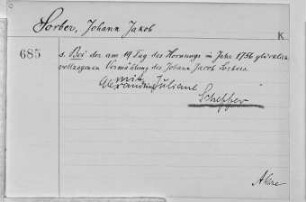 Sorber, Johann Jakob
K
685
s. Bei der am 19 Tag des Hornungs im Jahr 1756 glücklich
vollzogenen Vermählung des Johann Jacob Sorbers
mit
Juliane
Scheffer